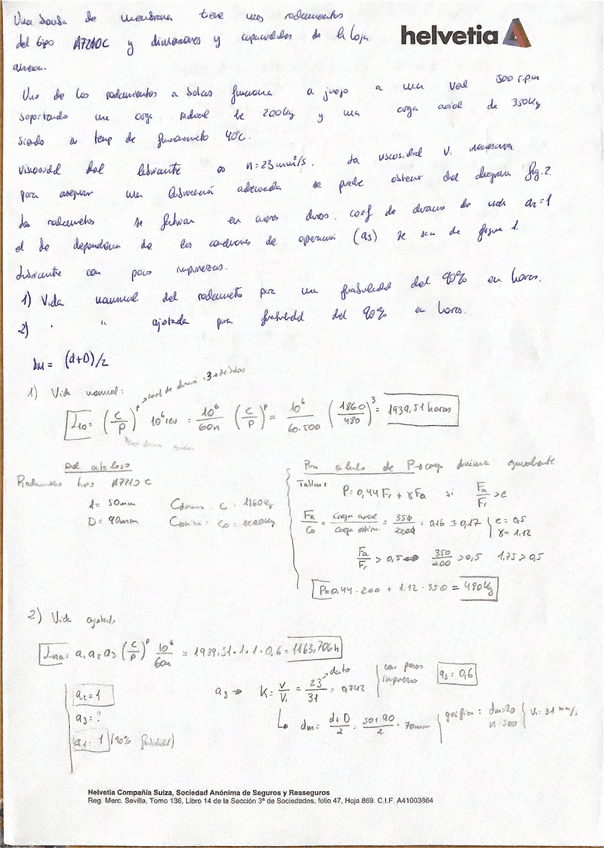 helvetia
Una bomba de membrana tiene unos rodamientos
del tipo A7210C y dimensiones y capacidades de la hoja
anexa.
Uno de los rodamientos a bolas funciona a juego a una vel 500 r.p.m
soportando una carga radial de 200kg y una carga axial de 350kg
siendo la temp de funcionamiento 40ºc.
viscosidad del lubricante es n=23mm²/s. La viscosidad V. necesaria
para asegurar una lubricación adecuada se puede obtener del diagrama fig.2.
Los rodamientos se fabrican en aceros duros. coef de duración de vida a2=1
el de dependencia de las condiciones de operación (a3) se saca de figura 1.
lubricante con pocas impurezas.
1) Vida nominal del rodamiento para una probabilidad del 90% en horas.
2) " " ajustada para probabilidad del 90% en horas.
dM = (d+D)/2
1) Vida nominal:
L10 = (C/P)^p 10^6 rev = 10^6/60n (C/P)^p = 10^6/60·500 (1860/480)^3 = 1939,51 horas
Del catálogo
Rodamiento tipo A7210C
d = 50mm
D = 90mm
Para cálculo de P→carga dinámica equivalente
Tablas: P=0,44Fr + YFa si Fa/Fr > e
Fa/Co = carga axial/carga estática = = 0,16 ≤ 0,17 { e = 0,5 Y = 1,12
Fa/Fr > 0,5 ⇒ 350/200 > 0,5 1,75 > 0,5
P=0,44 · 200 + 1,12 · 350 = 480kg
2) Vida ajustada
Lna = a1 a2 a3 (C/P)^p 10^6/60n = 1939,51·1·1·0,6 = 1163,706h
a2 = 1
a3 = ?
a1 = 1 (90% probabilidad)
a3 ⇒ K = V/V1 = 23/31 = 0,742
dato
con pocas impurezas
a3 = 0,6
dm = d+D/2 = 50+90/2 = 70mm
gráfica: dm=70 n=500 { V1 = 31 mm²/s
Helvetia Compañía Suiza, Sociedad Anónima de Seguros y Reaseguros
Reg. Merc. Sevilla, Tomo 136, Libro 14 de la Sección 3ª de Sociedades, folio 47, Hoja 869. C.I.F A41003864